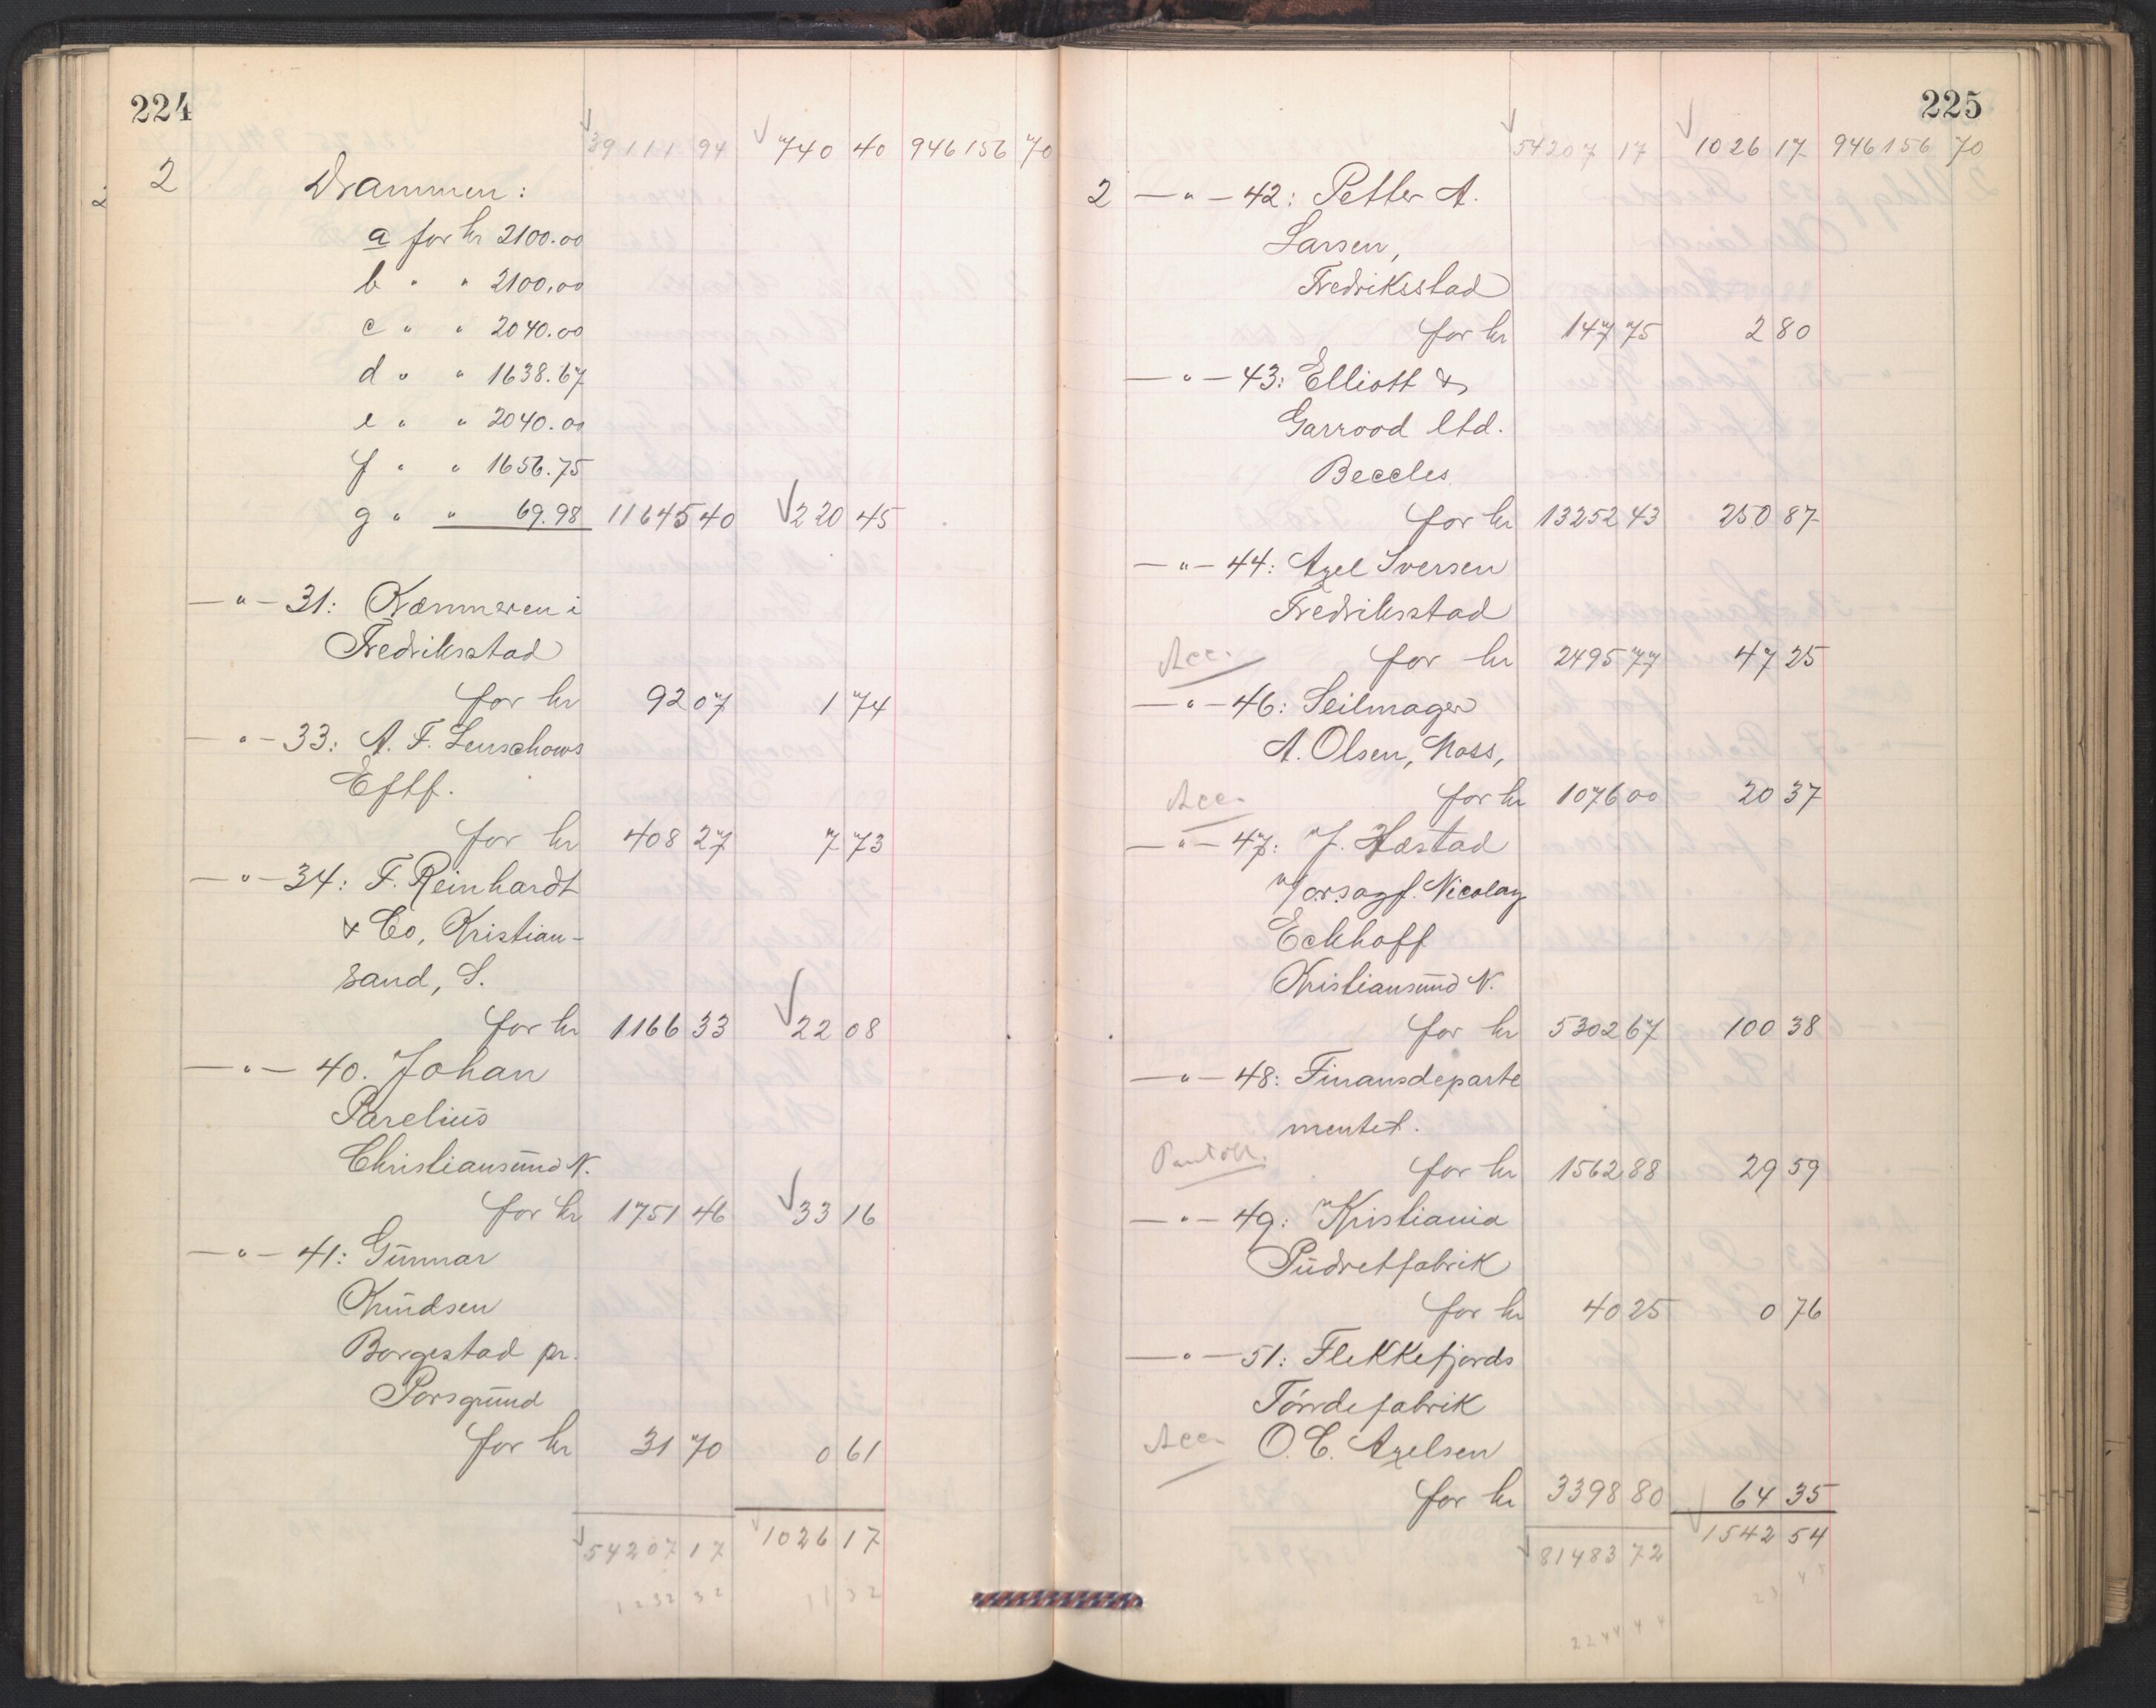 224
39111 94 740 40 946156 70
2 Drammen:
a for kr 2100.00
b " " 2100.00
c " " 2040.00
d " " 1638.67
e " " 2040.00
f " " 1656.75
g " " 69.98 11645 40 220 45
— " — 31: Kæmneren i
Fredriksstad
for kr 92 07 1 74
— " — 33: A. F. Lenschows
Eftf.
for kr 408 27 7 73
— " — 34: F. Reinhardt
& Co, Kristian-
sand, S.
for kr 1166 33 22 08
— " — 40. Johan
Parelius
Christiansund N.
for kr 1751 46 33 16
— " — 41: Gunnar
Knudsen
Borgestad pr.
Porsgrund
for kr 31 70 0 61
54207 17 1026 17
1232 32 11 32
225
54207 17 1026 17 946156 70
2 — " — 42: Petter A.
Larsen,
Fredriksstad
for kr 147 75 2 80
— " — 43: Elliott &
Garrood ltd.
Beccles
for kr 13252 43 250 87
— " — 44: Axel Iversen
Fredriksstad
Acc. for kr 2495 77 47 25
— " — 46: Seilmager
A. Olsen, Moss,
Acc. for kr 1076 00 20 37
— " — 47: J. Hæstad
v/o.r.sagf. Nicolay
Eckhoff
Kristiansund N.
for kr 5302 67 100 38
— " — 48: Finansdeparte
mentet.
for kr 1562 88 29 59
— " — 49: Kristiania
Pudretfabrik
for kr 40 25 0 76
— " — 51: Flekkefjords
Tøndefabrik
Acc. O. C. Axelsen
for kr 3398 80 64 35
81483 72 1542 54
23 45
2244 44